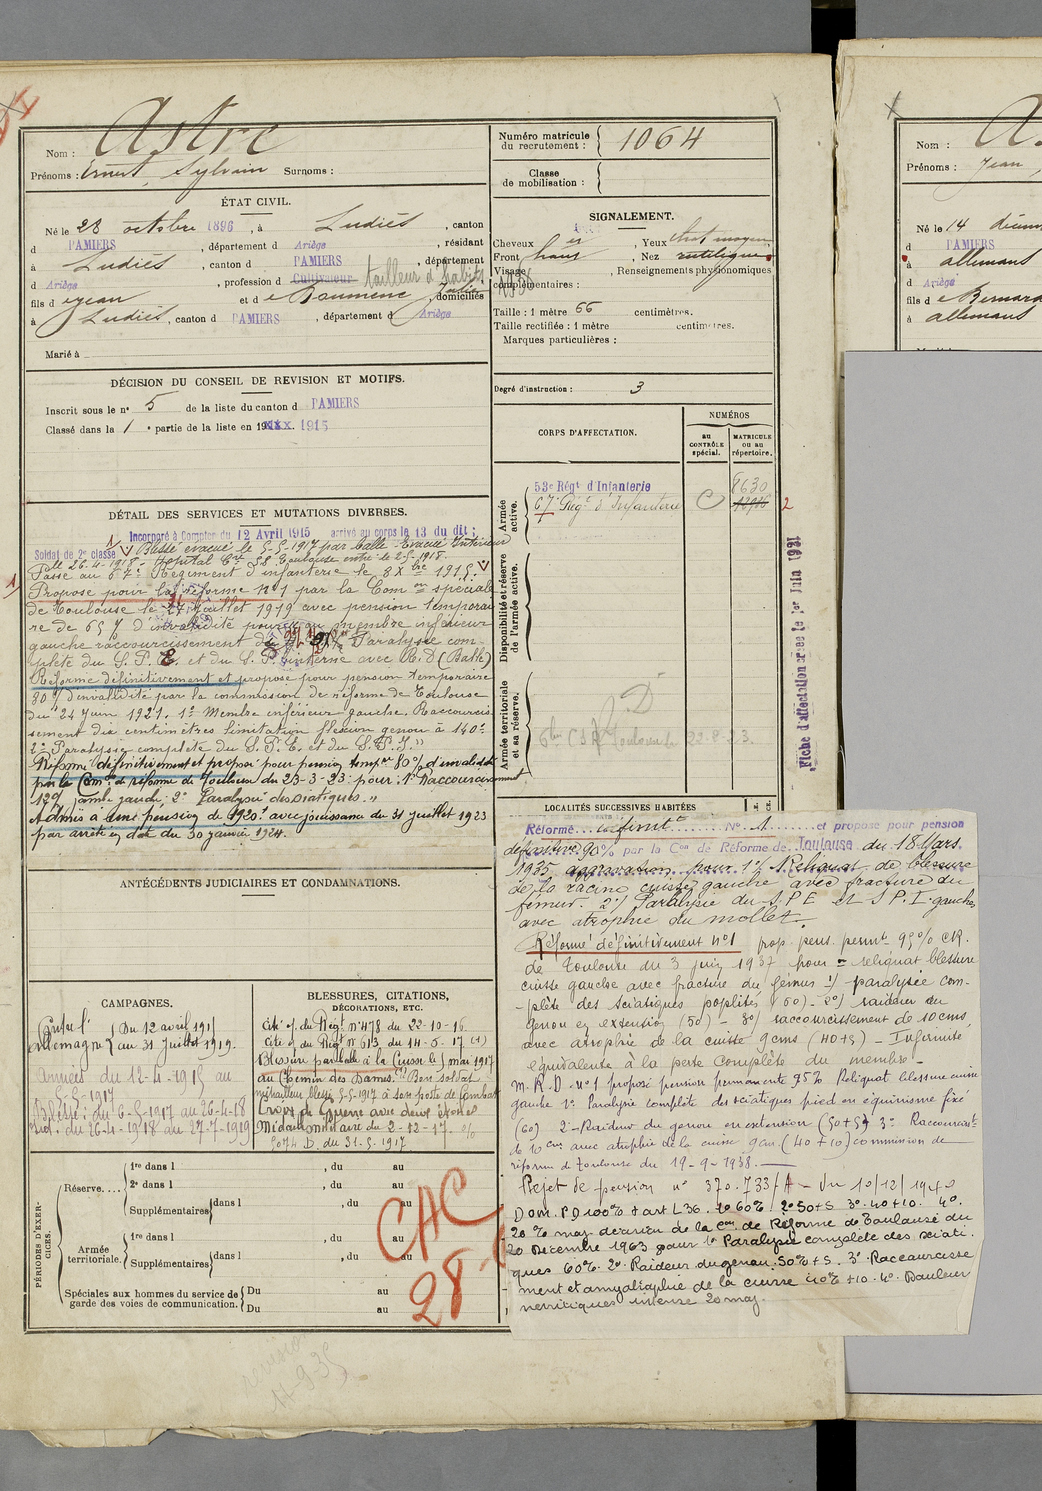 Astre
Nom :
Prénoms : Ernest, Sylvain Surnoms :
Numéro matricule du recrutement : 1064
Classe de mobilisation :
ÉTAT CIVIL.
Né le 28 octobre 1896, à Ludiès, canton
d PAMIERS, département d Ariège, résidant
à Ludiès, canton de PAMIERS, département
d Ariège, profession d Cultivateur tailleur d'habits
fils d e Jean et d e Baumenc Julie, domiciliés
à Ludiès, canton d PAMIERS, département d Ariège
Marié à
SIGNALEMENT.
Cheveux, Yeux chat. moyen
Front haut, Nez rectiligne
Visage, Renseignements physionomiques
complémentaires :
Taille : 1 mètre 66 centimètres.
Taille rectifiée : 1 mètre centimètres.
Marques particulières :
Degré d'instruction : 3
DÉCISION DU CONSEIL DE REVISION ET MOTIFS.
Inscrit sous le nº 5 de la liste du canton d PAMIERS
Classé dans la 1e partie de la liste en 1915
CORPS D'AFFECTATION.
NUMÉROS
au CONTRÔLE spécial.
MATRICULE ou au répertoire.
Armée active.
53e Régt d'Infanterie
67e Régt d'Infanterie
8630
Disponibilité et réserve de l'armée active.
Armée territoriale et sa réserve.
Toulouse 22-8-23.
Fiche d'affectation après le 1er Juin 1931
2
LOCALITÉS SUCCESSIVES HABITÉES
DÉTAIL DES SERVICES ET MUTATIONS DIVERSES.
Incorporé à Compter du 12 Avril 1915 arrivé au corps le 13 du dit ;
Soldat de 2e classe Blessé évacué le 5-5-1917 par balle - Évacué Intérieur
le 26-4-1918. Hôpital Toulouse entré le 2-5-1918.
Passé au 67e Régiment d'infanterie le 8 Xbre 1915.
Proposé pour la réforme nº1 par la Comon spéciale
de Toulouse le 27 Juillet 1919 avec pension temporai
re de 65 % d'invalidité pour membre inférieur
gauche raccourcissement de Paralysie com-
plète du S.P.E. et du S.P. interne avec R.D (Balle)
Réformé définitivement et proposé pour pension temporaire
80 % d'invalidité par la commission de réforme de Toulouse
du 24 Juin 1921. 1º Membre inférieur gauche. Raccourcis
sement dix centimètres limitation flexion genou à 140º
2º Paralysie complète du S.P.E. et du S.P.I. »
Réformé définitivement et proposé pour pension tempre 80% d'invalidité
par la Comon de réforme de Toulouse du 23-3-23 pour : 1º Raccourcissement
jambe gauche ; 2º Paralysie des sciatiques. »
Admis à une pension de 1920f avec jouissance du 31 juillet 1923
par arrêté en date du 30 janvier 1924.
ANTÉCÉDENTS JUDICIAIRES ET CONDAMNATIONS.
CAMPAGNES.
Contre l'Allemagne { Du 12 avril 1915
au 31 Juillet 1919.
Armées du 12-4-1915 au
5-5-1917
Blessé : du 6-5-1917 au 26-4-18
du 26-4-1918 au 27-7-1919
BLESSURES, CITATIONS, DÉCORATIONS, ETC.
Cité o. du Régt. Nº478 du 22-10-16.
Cité o. du Régt Nº 613 du 14-5-17. (1)
Blessure par balle à la Cuisse le 5 mai 1917
au Chemin des Dames. (1) Bon soldat
mitrailleur blessé 5-5-1917 à son poste de Combat
Croix de Guerre avec deux étoiles
Médaille militaire du 2-12-17.
5074 D. du 31-5-1917
PÉRIODES D'EXERCICES.
Réserve.... { 1re dans l , du au
2e dans l , du au
Supplémentaires { dans l , du au
Armée territoriale. { 1re dans l , du au
Supplémentaires { dans l , du au
Spéciales aux hommes du service de garde des voies de communication. { Du au
Du au
CAC
28
revision
11-9-35
Réformé définit. Nº 1 et proposé pour pension
définitive 90% par la Con de Réforme de Toulouse du 18 Mars
1935 aggravation pour 1º/ Reliquat de blessure
de la racine cuisse gauche avec fracture du
fémur. 2º/ Paralysie du S.P.E et S.P.I. gauche,
avec atrophie du mollet.
Réformé définitivement nº1 prop. pens. permte 95% CR.
de Toulouse du 3 juin 1937 pour reliquat blessure
cuisse gauche avec fracture du fémur 1/ paralysie com-
-plète des sciatiques poplités (60) - 2º/ raideur du
genou en extension (50) - 3º/ raccourcissement de 10 cms,
avec atrophie de la cuisse 9cms (40+5) - Infirmité
équivalente à la perte complète du membre -
M.R.D. nº1 proposé pension permanente 95% Reliquat blessure cuisse
gauche 1º Paralysie complète des sciatiques pied en équinisme fixé
(60) 2º Raideur du genou en extention (50+5) 3º Raccourcist
de 10 cms avec atrophie de la cuisse 9 cm. (40+10) commission de
réforme de Toulouse du 19-9-1938.
Rejet de pension nº 370.733/A - du 10/12/19
Dom. PD 100% + art L36. 1º 60%. 2º 50+5. 3º 40+10. 4º.
20% maj. décision de la Com. de Réforme de Toulouse du
20 Décembre 1963 pour 1º Paralysie complète des sciati-
ques 60%. 2º Raideur du genou 50%+5. 3º Raccourcisse
ment et amyotrophie de la cuisse 40%+10. 4º Douleurs
névritiques intense 20 maj.
Nom : A
Prénoms : Jean
Né le 14
d PAMIERS
à allemans
d Ariège
fils d e Bernard
à allemans